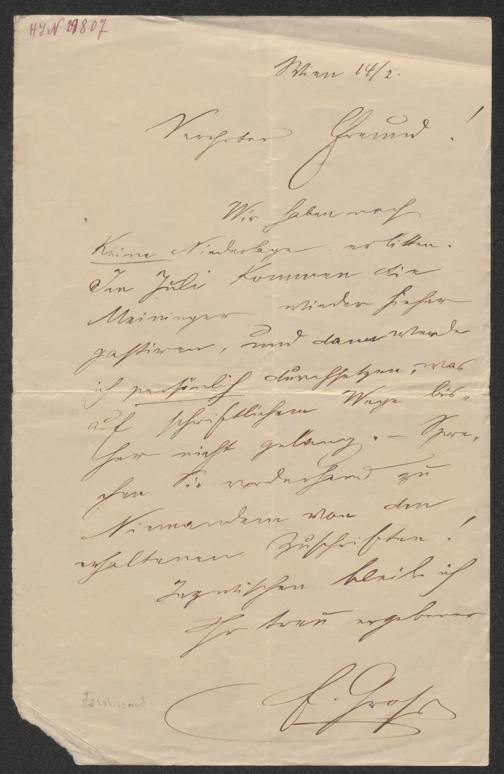 HJN 29807
Wien 14/2.
Verehrter Freund!
Wir haben noch
Keine Niederlage erlitten.
Im Juli kommen die
Meininger wieder hieher
gastiren, und dann werde
ich persönlich durchsetzen, was
auf schriftlichem Wege bis-
her nicht gelang. – Spre-
chen Sie vorderhand zu
Niemandem von den
erhaltenen Zuschriften!
Inzwischen bleibe ich
Ihr treu ergebener
F. Groß
Ferdinand